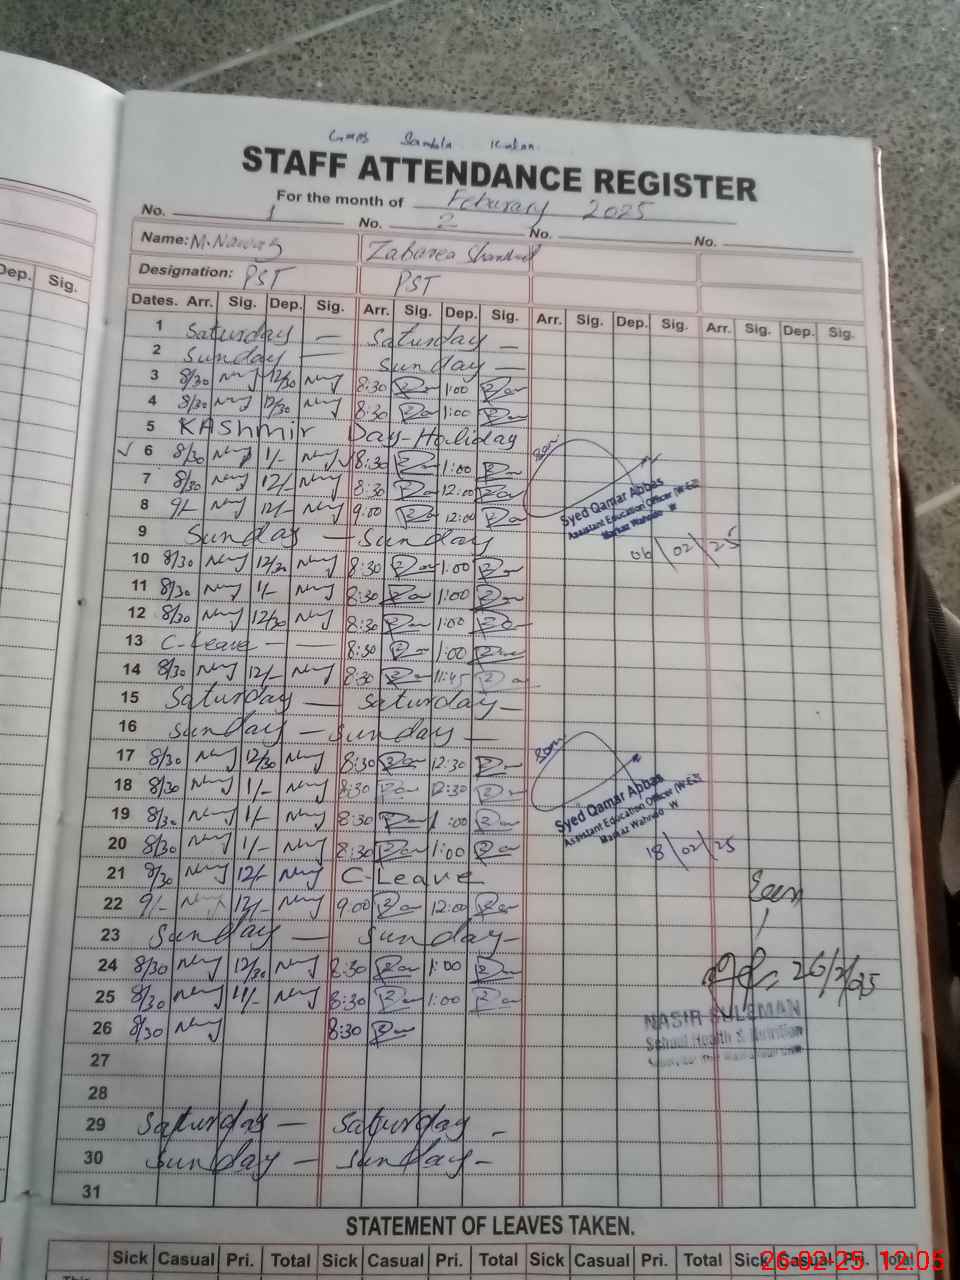 STAFF ATTENDANCE REGISTER
For the month of Feburary 2025
No. 1 No. 2 No. No.
Name: M. Nawaz Zabarea Shamhad
Designation: PST PST
Dates. Arr. Sig. Dep. Sig. Arr. Sig. Dep. Sig. Arr. Sig. Dep. Sig. Arr. Sig. Dep. Sig.
1 Saturday — Saturday —
2 Sunday — Sunday —
3 8/30 12/30 8:30 1:00
4 8/30 12/30 8:30 1:00
5 KAShmir Day-Holiday
6 8/30 1/- 8:30 1:00
7 8/30 12/- 8:30 12:00
8 9/- 12/- 9:00 12:00
9 Sunday — Sunday
10 8/30 12/30 8:30 1:00
11 8/30 1/- 8:30 1:00
12 8/30 12/30 8:30 1:00
13 C-Leave — 8:30 1:00
14 8/30 12/- 8:30 11:45
15 Saturday — Saturday —
16 Sunday — Sunday —
17 8/30 12/30 8:30 12:30
18 8/30 1/- 8:30 12:30
19 8/30 1/- 8:30 1:00
20 8/30 1/- 8:30 1:00
21 8/30 12/- C-Leave
22 9/- 12/- 9:00 12:00
23 Sunday — Sunday —
24 8/30 12/30 8:30 1:00
25 8/30 11/- 8:30 1:00
26 8/30 8:30
27
28
29 Saturday — Saturday —
30 Sunday — Sunday —
31
Syed Qamar Abbas
Assistant Education Officer (W-EE)
Markaz Wahndo W
06/02/25
Syed Qamar Abbas
Assistant Education Officer (W-EE)
Markaz Wahndo W
18/02/25
Seen
26/2/25
NASIR SULEMAN
School Health & Nutrition
STATEMENT OF LEAVES TAKEN.
Sick Casual Pri. Total Sick Casual Pri. Total Sick Casual Pri. Total Sick Casual Pri. Total
This
Dep. Sig.
26-02-25 12:05